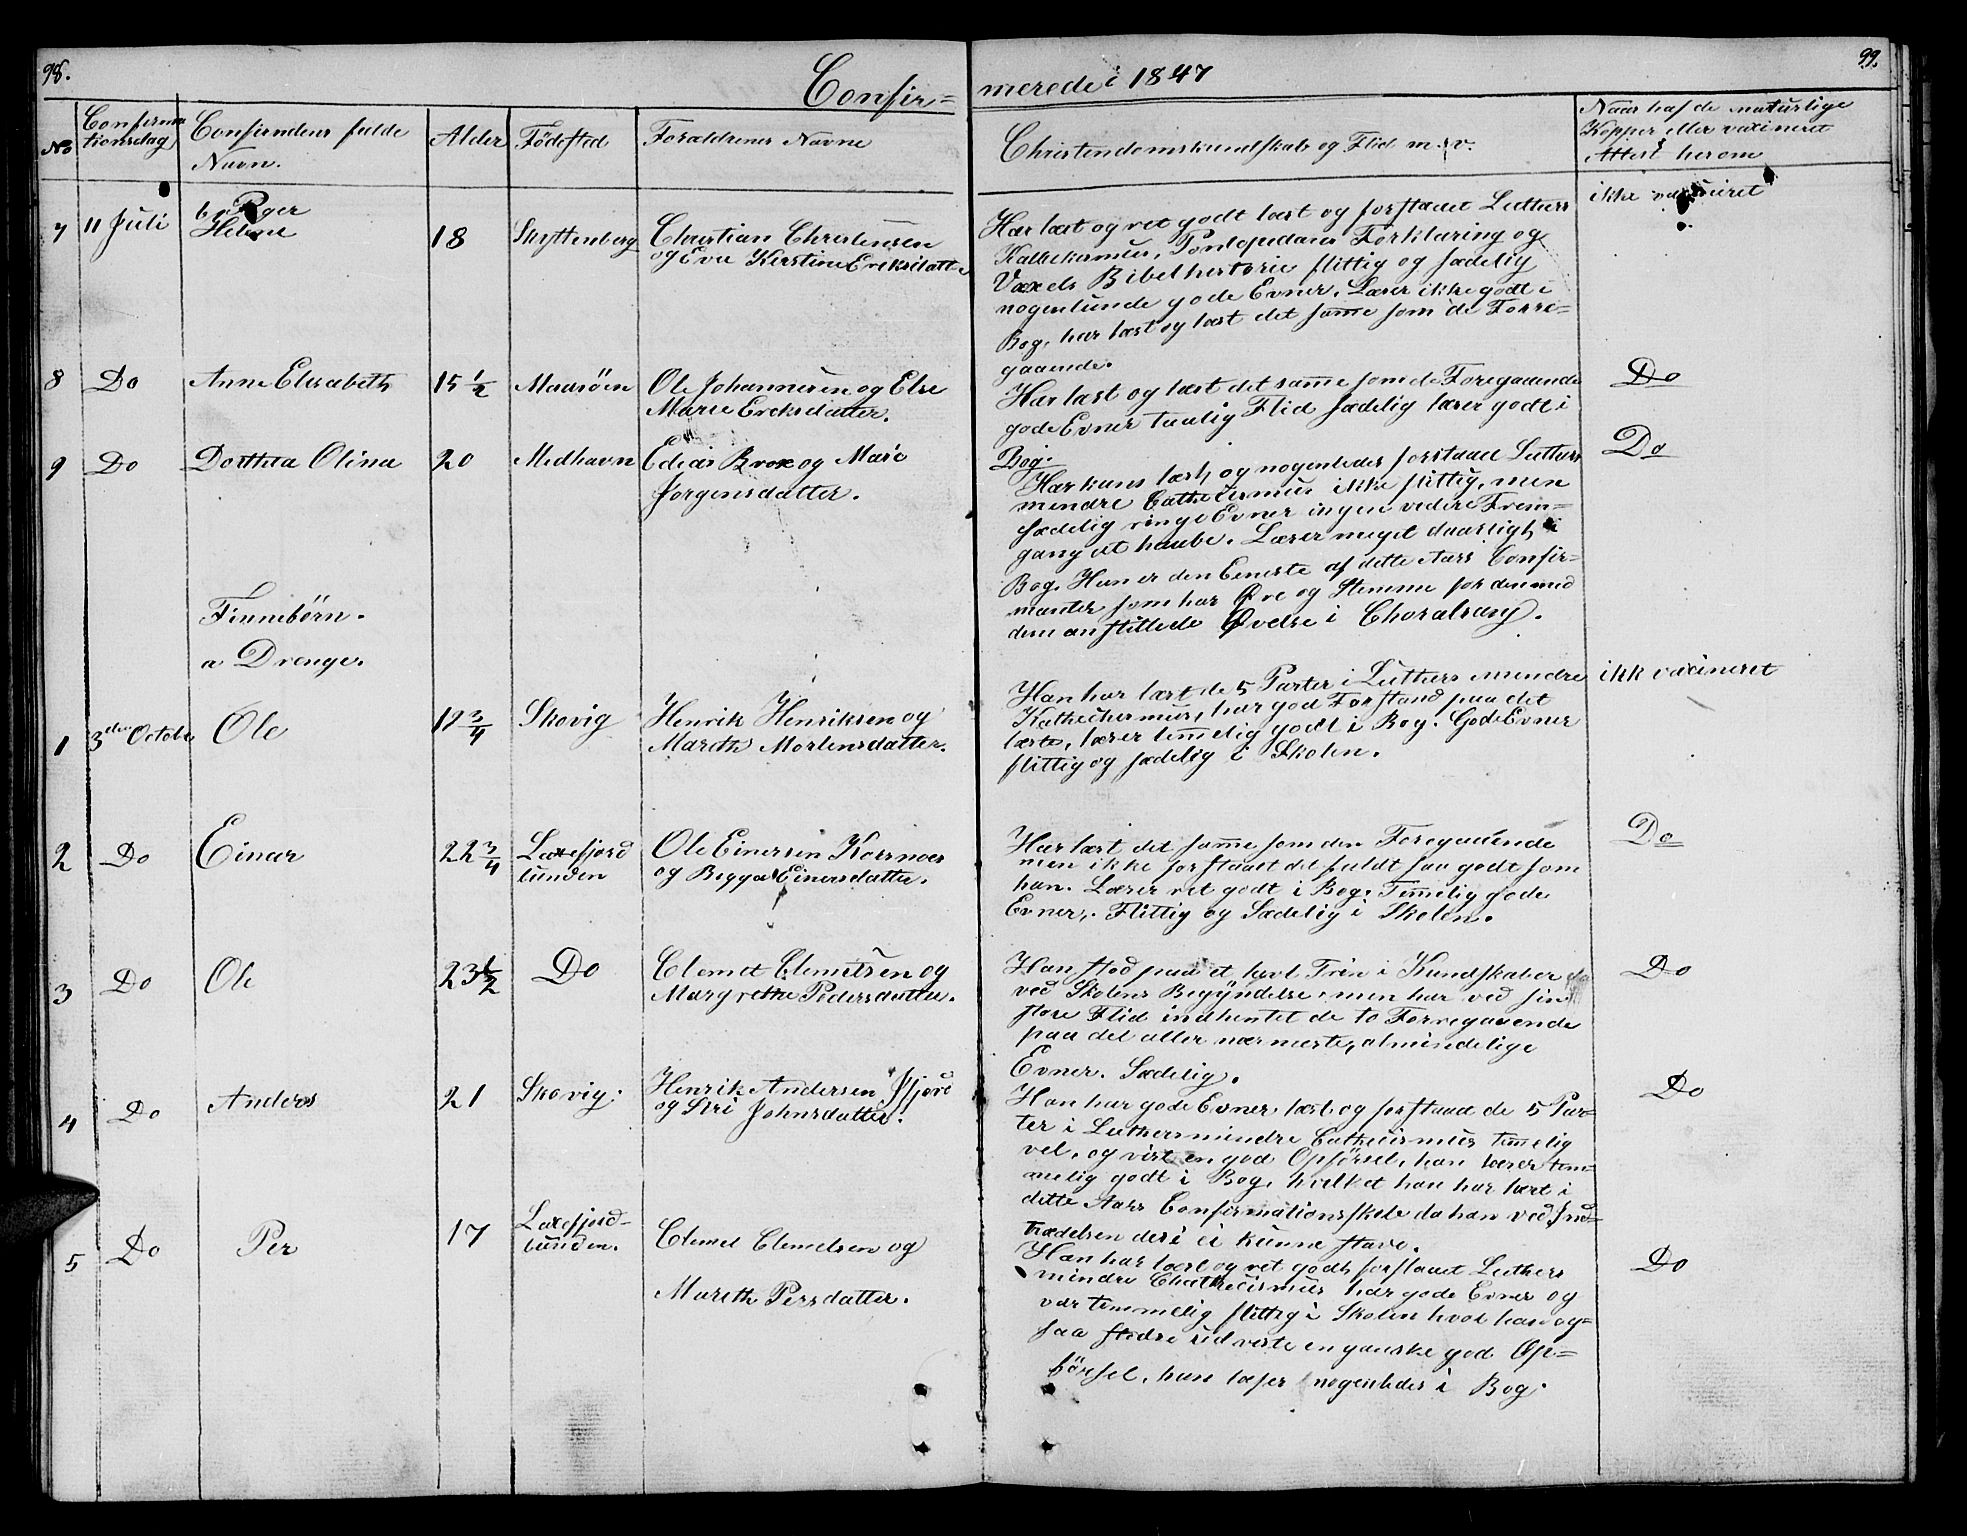 98.
99.
Confir=
merede i 1847
No
Confirma
tionsdag
Confirndens fulde
Navn.
Alder
Fødested
Foraldrenes Navne
Christendomskundskab og Flid m. v.
Naar haf de naturlige
Kopper eller vaxineret
Attest herom
b. Piger
7 11 Juli Helene 18
Christian Christensen
og Eva Kirstine Eriksdatte
Har læst og ret godt læst og forstaaet Luthers
Katekismus, Pontopedans Forklaring og
Vaxels Bibelhistorie flittig og sædelig
nogenlunde gode Evner. Læser ikke godt i
Bog, har læst og læst det samme som de Forre-
gaaende.
ikke vaxineret
8 Do Anne Elisabeth 15 1/2 Maasöen
Ole Johannesen og Else
Marie Ereksdatter.
Har læst og læst det samme som de Foregaaende
gode Evner taalig Flid sædelig læser godt i
Bog.
Do
9 Do Dorthea Olina 20 Medhavn
Edias Brox og Mari
Jörgensdatter.
Har kuns læst, og nogenledes forstaaet Luthers
mindre Cathecismus ikke flittig, men
sædelig ringe Evner ingen videre Frem=
gang at haabe. Læser meget daarligt i
Bog. Hun er den Eeneste af dette Aars Confir=
manter som har Øre og Stemme for den med
dem anstillede Øvelse i Choralsang.
Do
Finnebörn.
a Drenge.
1 3die Octobr Ole 19 3/4 Skovig
Henrik Henriksen og
Mareth Mortensdatter.
Han har læst de 5 Parter i Luthers mindre
Kathechismus, har god Forstand paa det
læste, læser temelig godt i Bog. Gode Evner
flittig og sædelig i Skolen.
ikk vaxineret
2 Do Einar 22 3/4 Laxefjord
bunden
Ole Einersen Korsnæs
og Bigga Einersdatter.
Har læst det samme som den Foregaaende
men ikke forstaaet det fuldt saa godt som
han. Læser ret godt i Bog. Temelig gode
Evner. Flittig og Sædelig i Skolen.
Do
3 Do Ole 23 1/2 Do
Clemet Clemetsen og
Margrethe Pedersdatter.
Han stod paa et lavt Trin i Kundskaber
ved Skolens Begyndelse, men har ved sin
store Flid indhentet de to Forregaaende
paa det aller nærmeste, almindelige
Evner. Sædelig.
Do
4 Do Anders 21 Skovig.
Henrik Andersen Ifjord
og Siri Johnsdatter.
Han har gode Evner, læst og forstaaet de 5 Par-
ter i Luthers mindre Cathecismus temelig
vel, og vist en god Opførsel, han læser tem-
melig godt i Bog, hvilket han har lært i
dette Aars Confirmationsskole da han ved Ind-
trædelsen deri ei kunne stave.
Do
5 Do Per 17 Laxefjord-
bunden.
Clemet Clemetsen og
Mareth Persdatter.
Han har læst og ret godt forstaaet Luthers
mindre Chathecismus har gode Evner og
var temmelig flittig i Skolen hvor han og=
saa stedse udviste en ganske god Op=
försel, han læser nogenledes i Bog.
Do